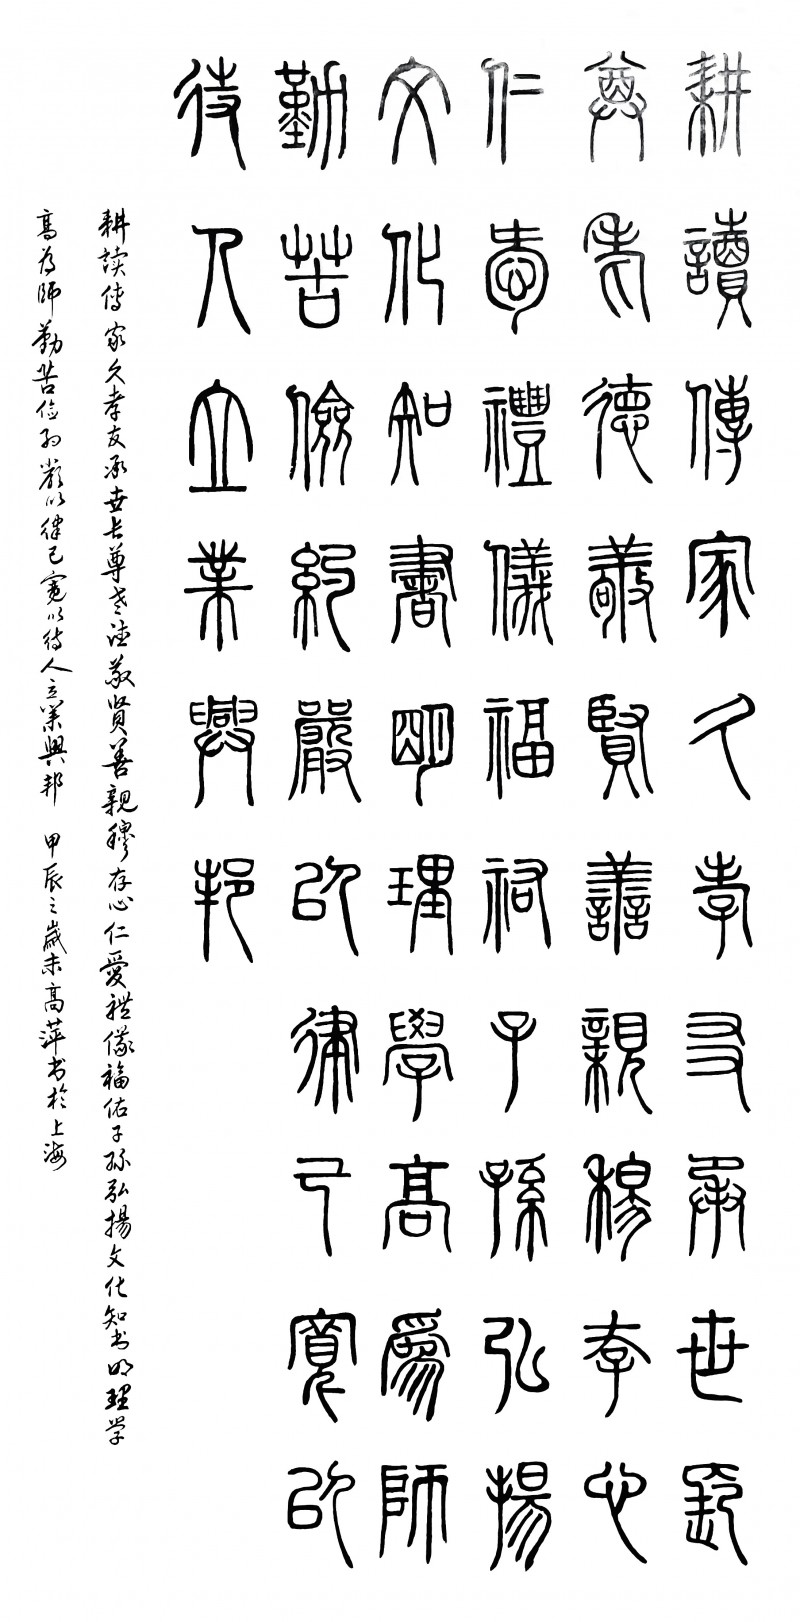 耕讀傳家久孝友承世長
尊老德敬賢善親穆存心
仁愛禮儀福祐子孫弘揚
文化知書明理學高為師
勤苦儉約嚴以律己寬以
待人立業興邦
耕讀傳家久孝友承世长尊老德敬贤善親穆存心仁愛禮儀福佑子孫弘揚文化知书明理学
高为师勤苦俭约嚴以律己寬以待人立業興邦 甲辰之歲末高萍书於上海